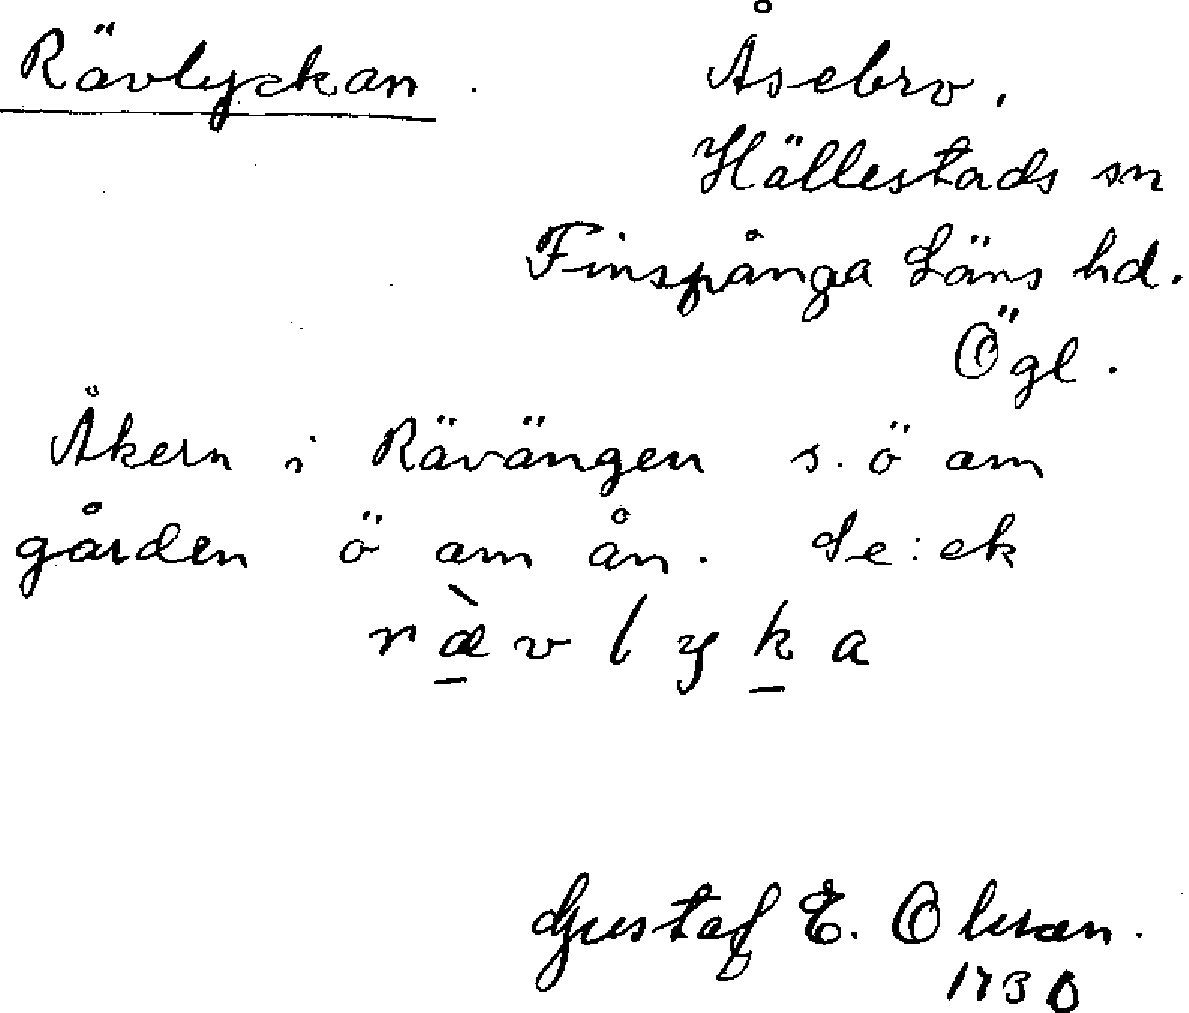 Rävlyckan. Åsebro.
Hällestads sn
Finspånga Läns hd.
Ögl.
Åkern i Rävängen s. ö om
gården ö om ån. Se: ek
ræ̀vlyka
Gustaf E. Olsson.
1930